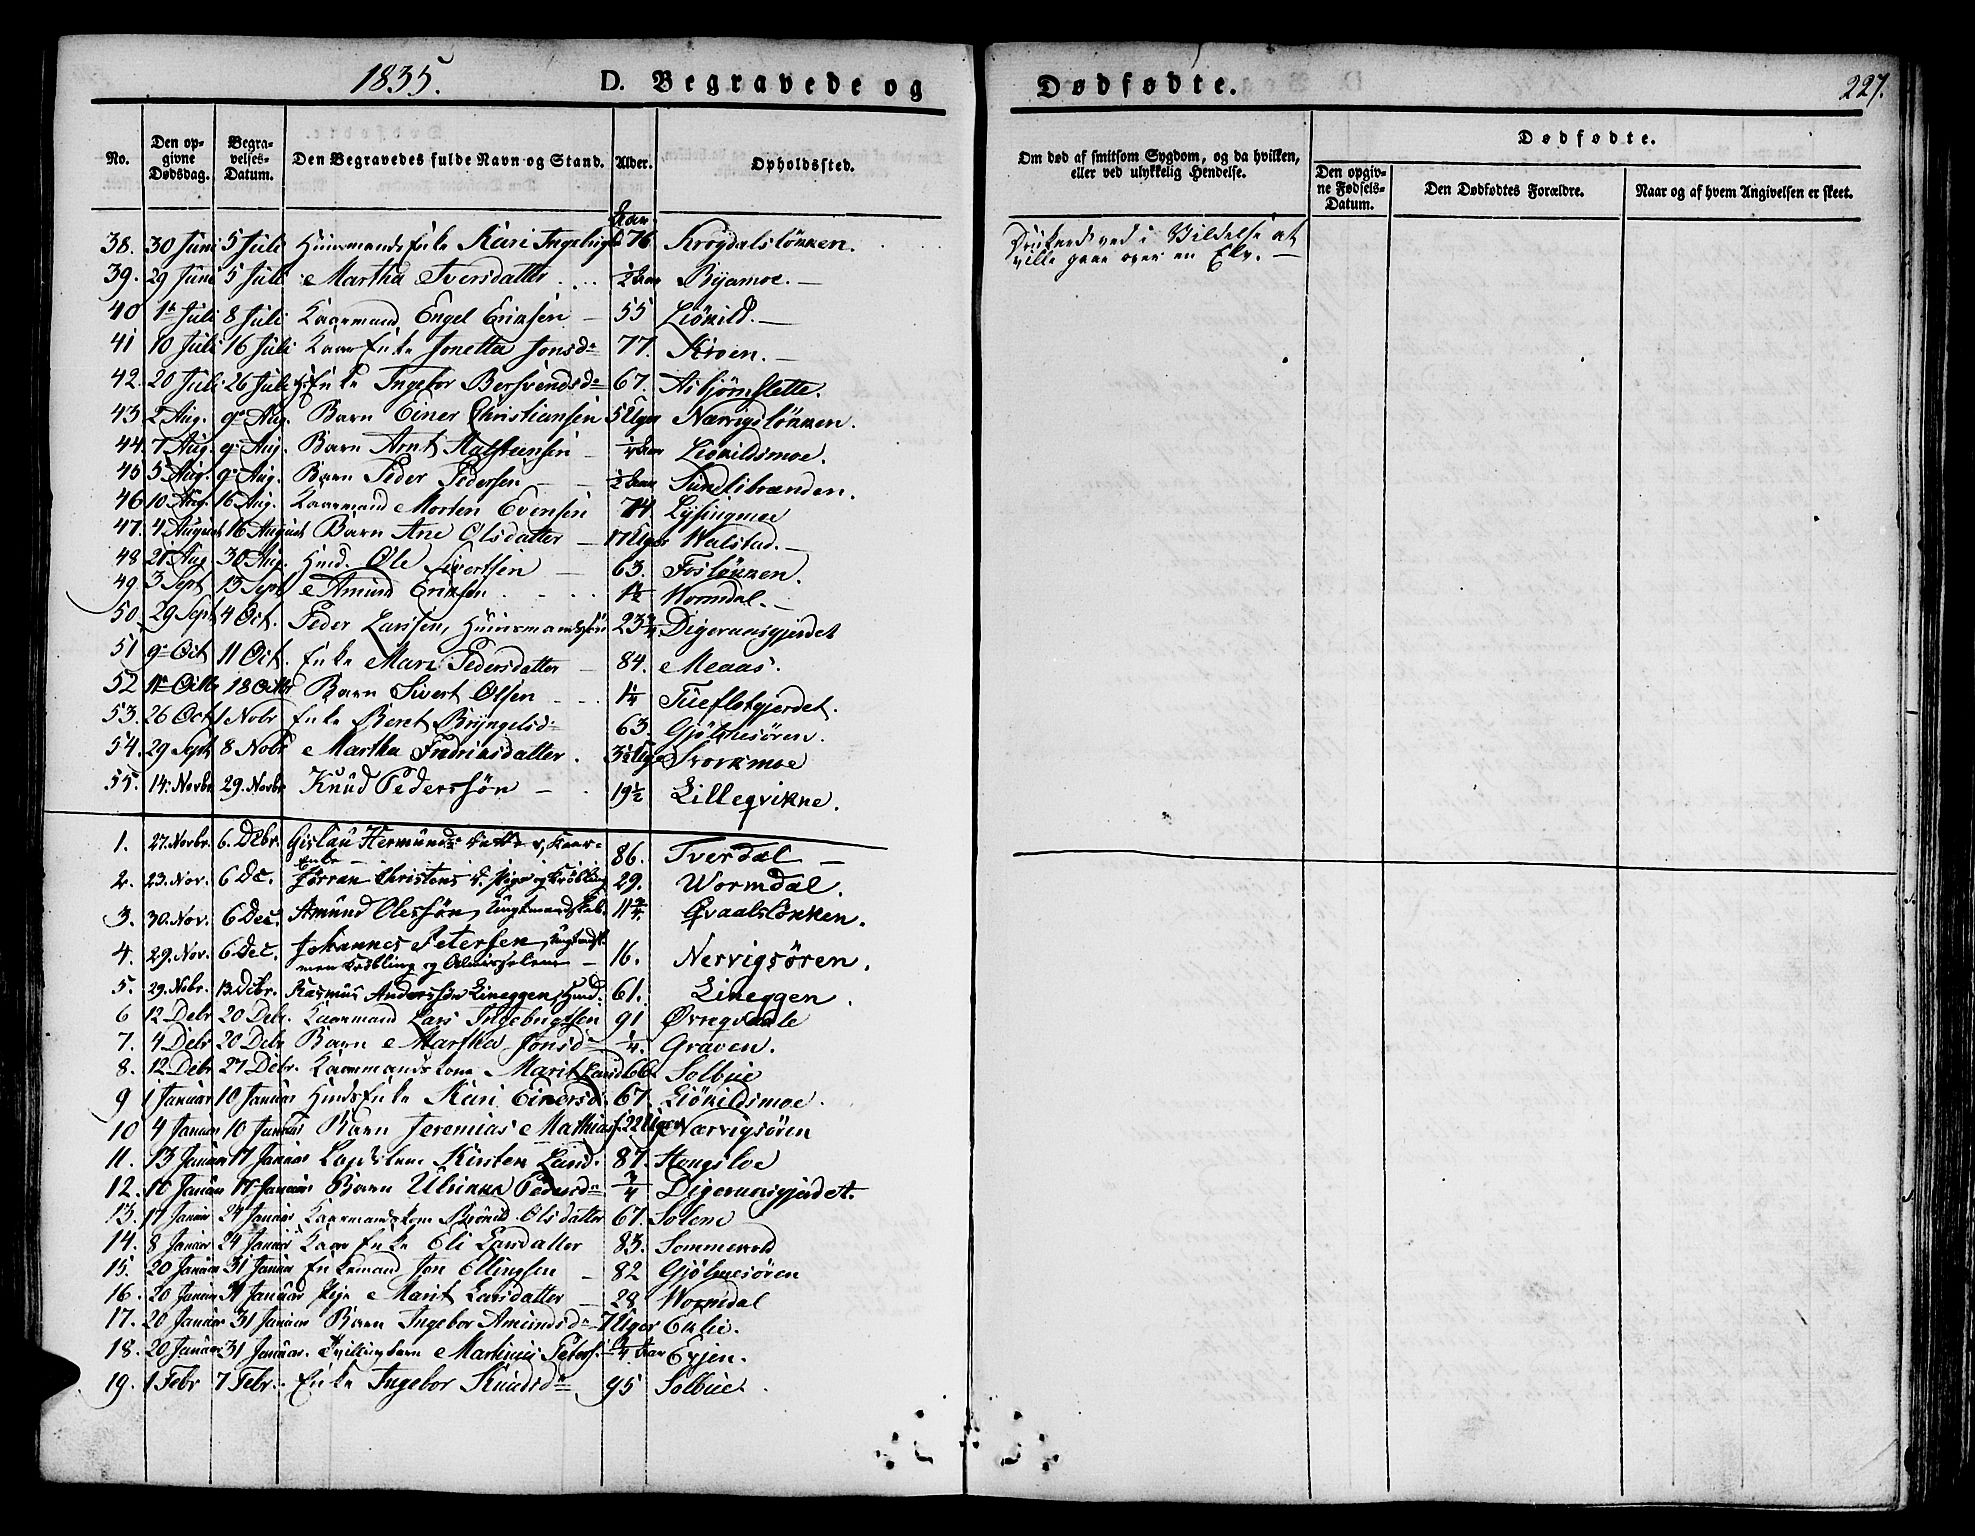 1835. D. Begravede og Dødfødte. 227.
No. Den opgivne Dødsdag. Begravelses-Datum. Den Begravedes fulde Navn og Stand. Alder. Opholdssted.
Om død af smitsom Sygdom, og da hvilken, eller ved ulykkelig Hendelse.
Dødfødte.
Den opgivne Fødsels-Datum. Den Dødfødtes Forældre. Naar og af hvem Angivelsen er skeet.
Aar
38. 30 Juni 5 Juli Huusmands Enke Kari 76 Krogdalslökken.
Druknede ved i Vildelse at
ville gaae over en Elv. —
39. 29 Juni 5 Juli Martha Iversdatter ½ Aar Byamoe. —
40 1 Juli 8 Juli Kaarmand Engel Eriksen — 55 Liökild. —
41 10 Juli 16 Juli Kaar Enke Jonetta Jonsd. 77. Kroen. —
42. 20 Juli 26 Juli Enke Ingebor Bersvendsd. 67. Asbjörnslette.
43. 2 Aug. 9 Aug. Barn Einer Christiansen 5 Uger Nærvigslökken.
44. 7 Aug. 9 Aug. Barn Arnt Halsteinsen — ¼ Aar Liökildsmoe.
45 5 Aug. 9 Aug. Barn Peder Pedersen — ½ Aar Sundlibrænden.
46 10 Aug. 16 Aug. Kaarmand Morten Evensen 74 Lysingmoe
47. 4 August 16 August Barn Ane Olsdatter — 17 Uger Walstad. —
48 21 Aug. 30 Aug. Hmd. Ole Sivertsen — 63. Foslökken.
49 3 Sept 13 Sept Amund Eriksen 1½ Wormdal. —
50. 29 Sept 4 Oct. Peder Larssen, Huusmandssön 23¾ Digeraasgjerdet
51 9 Oct 11 Oct. Enke Mari Pedersdatter — 84. Meaas.
52 11 Octb 18 Octb Barn Sivert Olsen 1¼ Tuefletgjerdet.
53. 26 Oct 1 Nobr Enke Beret Bryngelsd. 63. Gjölmesören.
54. 29 Sept 8 Nobr Martha Fredriksdatter. 3½ Uge Svorkmoe
55. 14. Novbr 29. Novbr Knud Pederssön — 19½ Lilleqvikne.
1. 27. Novbr. 6. Debr. Gislau Hermunds Datter, Kaar-
enke — 86. Tverdal —
2. 23. Nov. 6 Dec. Jörran Christens D. Pige og Kröbling 29. Wormdal.
3. 30. Nov. 6 Dec. Amund Olessön, 11¾. Qvaalslökken.
4. 29. Nov. 6 Dec. Johannes Petersen,
Kröbling og Almisselem — 16. Nervigsören.
5. 29. Nobr. 13. Debr. Rasmus Anderssön Lineggen, Hmd. 61. Lineggen.
6 12 Debr 20 Debr. Kaarmand Lars Ingebrigtsen 91 Övreqvaale
7. 4 Debr 20 Debr Barn Martha Jonsd. ¼. Graven.
8. 12 Debr 27 Debr. Kaarmandskone Marit Larsd 66. Solbue
9 1 Januar 10 Januar Hmds Enke Kari Einersd. 67. Liökildsmoe.
10 4 Januar 10 Januar Barn Jeremias Mathias. 22 Uger Nærvigsören
11. 13 Januar 17 Januar Lægdslem Kirsten Larsd. 87. Hongsloe
12. 10 Januar 17 Januar Barn Ulrikka Pedersd. ¾ Digeraasgjerdet.
13. 17 Januar 24 Januar Kaarmandskone Brönild Olsdatter 67. Solem
14. 8 Januar 24 Januar Kaar Enke Eli Larsdatter 83. Sommervold
15. 20 Januar 31 Januar Enkemand Jon Ellingsen — 82 Gjölmesören
16. 20 Januar 31 Januar Pige Marit Larsdatter — 28 Wormdal
17. 20 Januar 31 Januar Barn Ingebor Amundsd. 7 Uger Eklie.
18. 20 Januar 31 Januar. Tvillingbarn Martinus Peters. ¾ Aar Evjen.
19. 1 Febr 7 Febr. Enke Ingebor Knudsd. 95 Solbue.